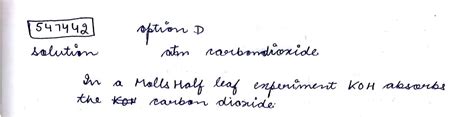 547442 option D
solution atm carbondioxide
In a Molls Half leaf experiment KOH absorbs
the KOH carbon dioxide